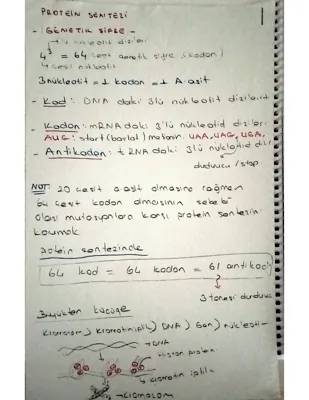 PROTEİN SENTEZİ
- GENETİK ŞİFRE -
3'lü nükleotit dizileri
4³ = 64 çeşit genetik şifre (kodon)
4 çeşit nükleotit
3 nükleotit = 1 kodon = 1 A.asit
- Kod: DNA daki 3'lü nükleotit dizileri
- Kodon: mRNA daki 3'lü nükleotid dizileri
AUG: start (başlat) metionin. UAA, UAG, UGA,
- Antikodon: tRNA daki 3'lü nükleotid dizi
durdurucu / stop
NOT: 20 çeşit a.asit olmasına rağmen
64 çeşit kodon olmasının sebebi
olası mutasyonlara karşı protein sentezin
korumak
Protein sentezinde
64 kod = 64 kodon = 61 antikod
3 tanesi durduruc
Büyükten küçüğe
Kromozom / Kromatin iplik / DNA / Gen / nükleoti
→ DNA
histon protein
→ kromatin iplik
→ kromozom